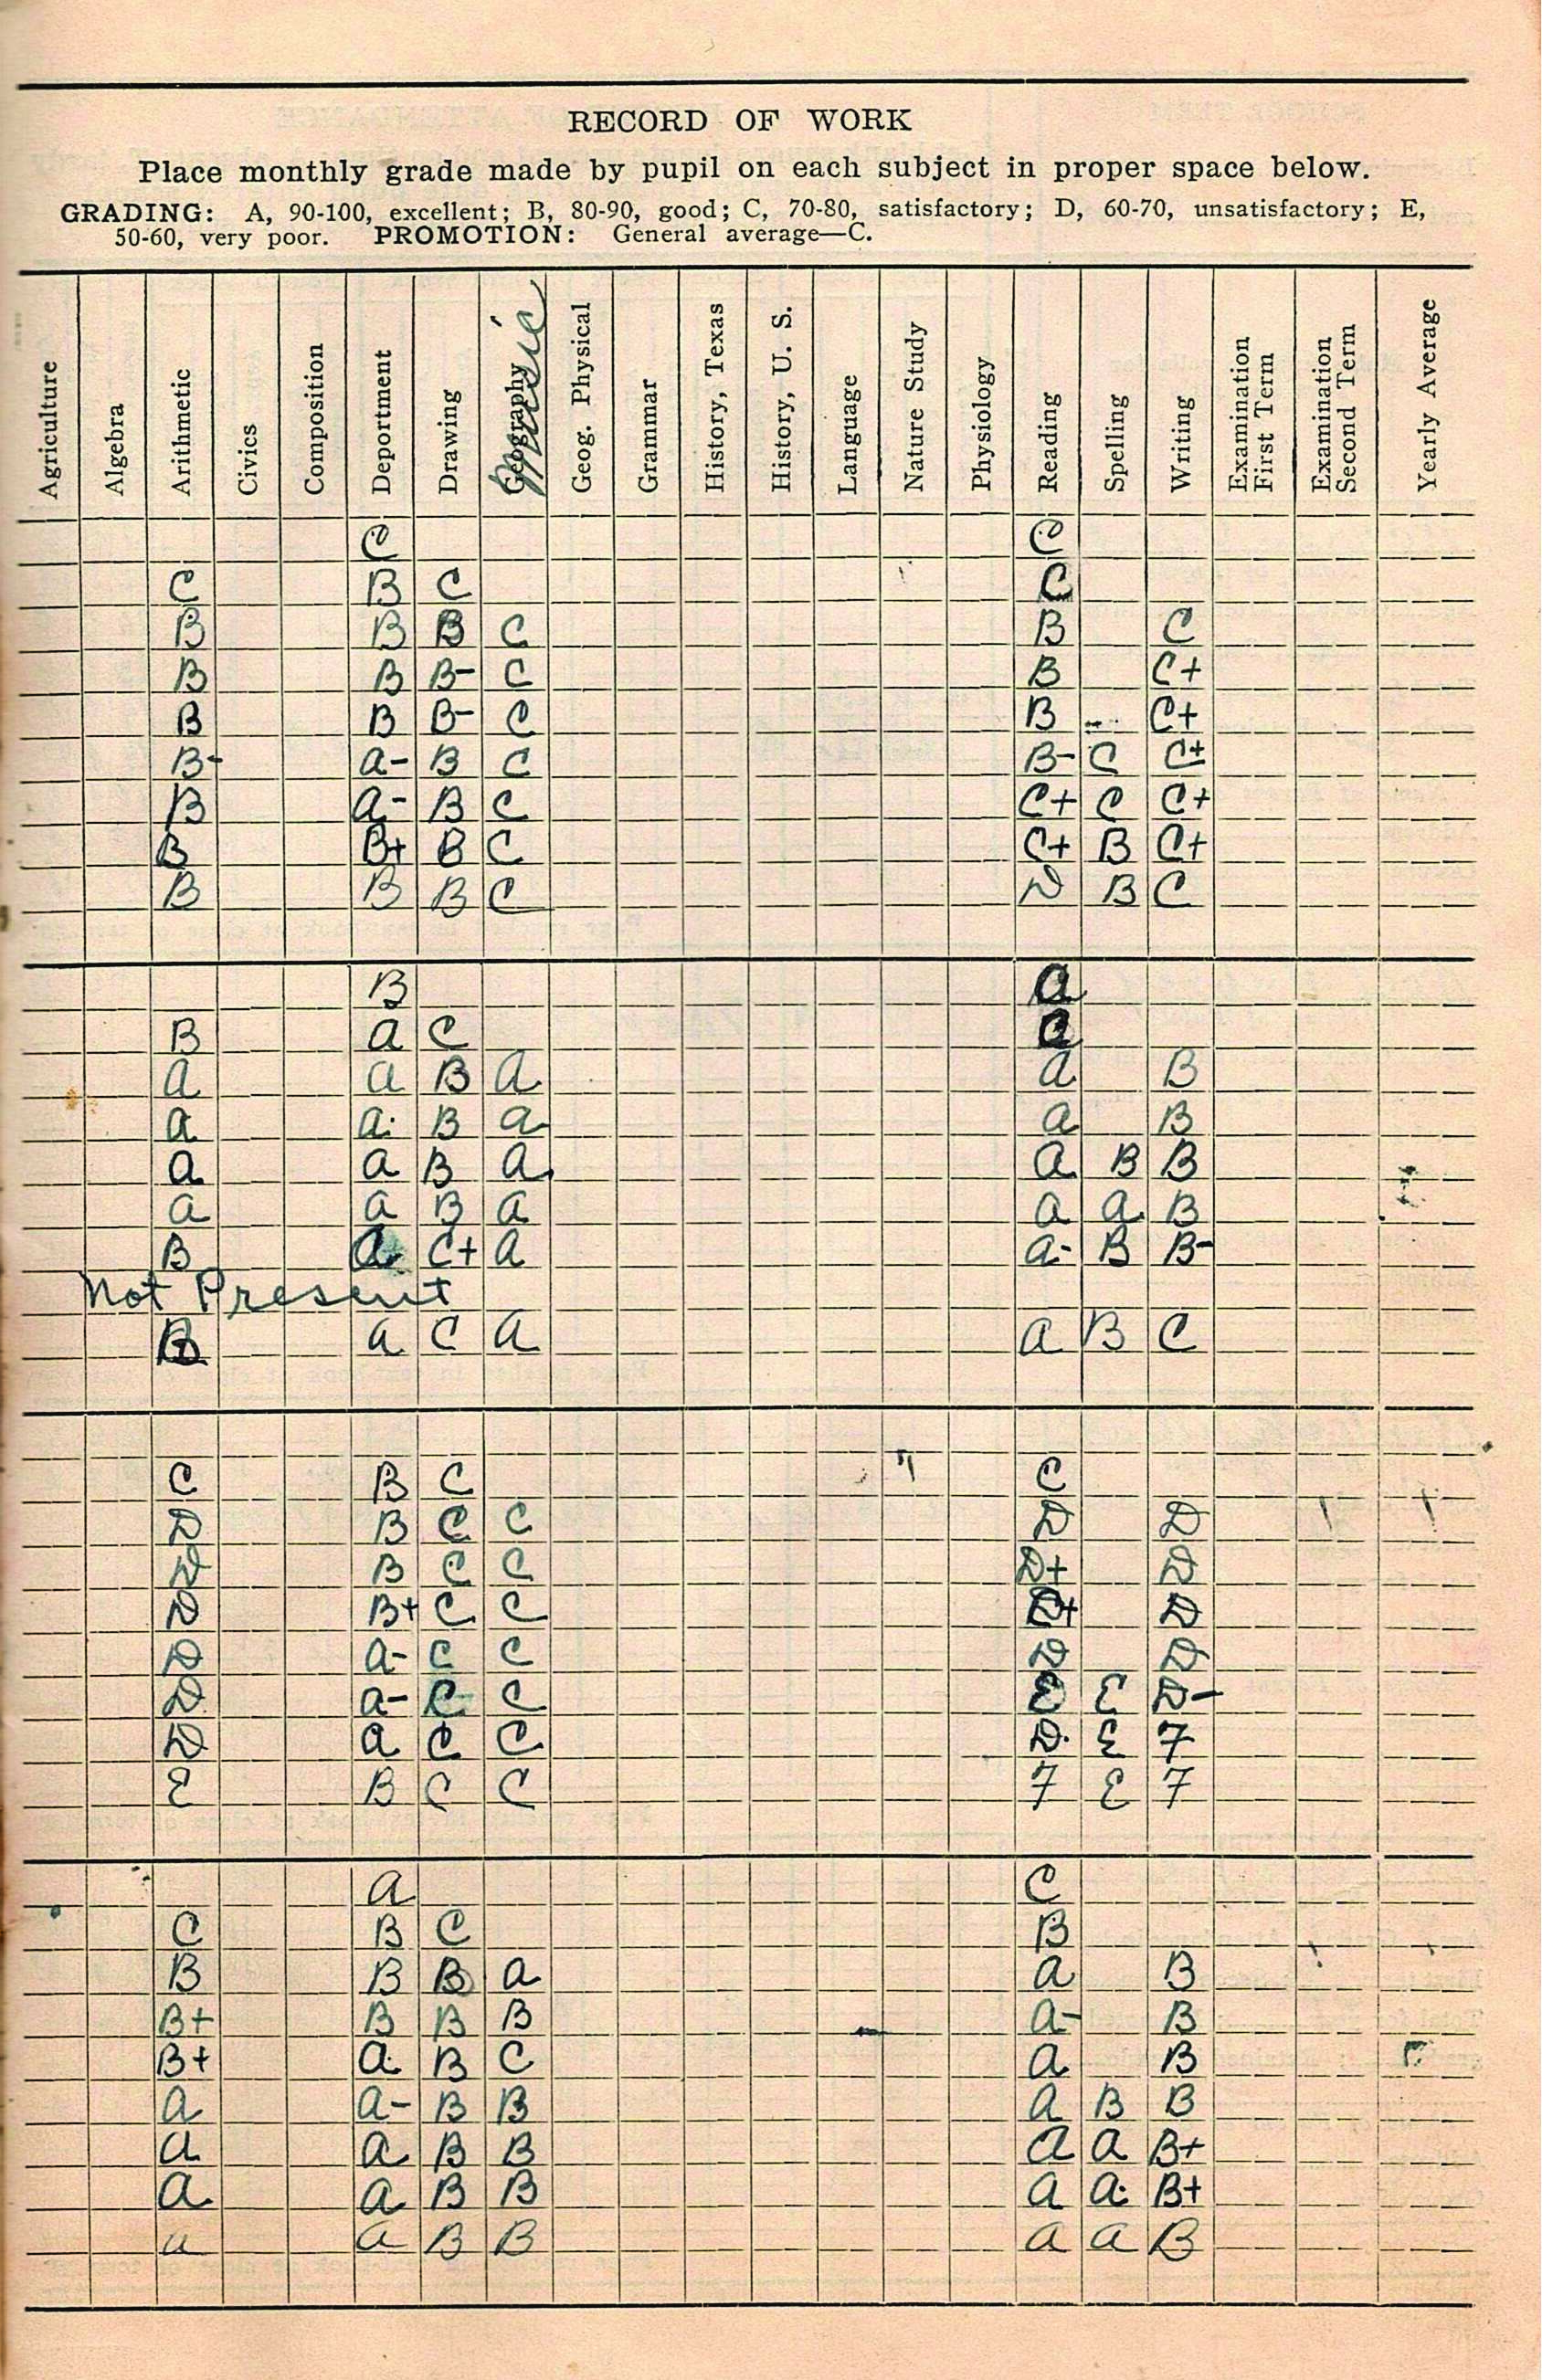 RECORD OF WORK
Place monthly grade made by pupil on each subject in proper space below.
GRADING: A, 90-100, excellent; B, 80-90, good; C, 70-80, satisfactory; D, 60-70, unsatisfactory; E,
50-60, very poor. PROMOTION: General average—C.
Agriculture
Algebra
Arithmetic
Civics
Composition
Deportment
Drawing
Geography
Music
Geog. Physical
Grammar
History, Texas
History, U. S.
Language
Nature Study
Physiology
Reading
Spelling
Writing
Examination
First Term
Examination
Second Term
Yearly Average
C C
C B C C
B B B C B C
B B B- C B C+
B B B- C B C+
B- A- B C B- C C+
B A- B C C+ C C+
B B+ B C C+ B C+
B B B C D B C
B A
B A C A
A A B A A B
A A B A A B
A A B A A B B
A A B A A A B
B A C+ A A- B B-
Not Present
B A C A A B C
C B C C
D B C C D D
D B C C D+ D
D B+ C C D+ D
D A- C C D D
D A- C C E E D-
D A C C D E F
E B C C F E F
A C
C B C B
B B B A A B
B+ B B B A- B
B+ A B C A B
A A- B B A B B
A A B B A A B+
A A B B A A B+
A A B B A A B